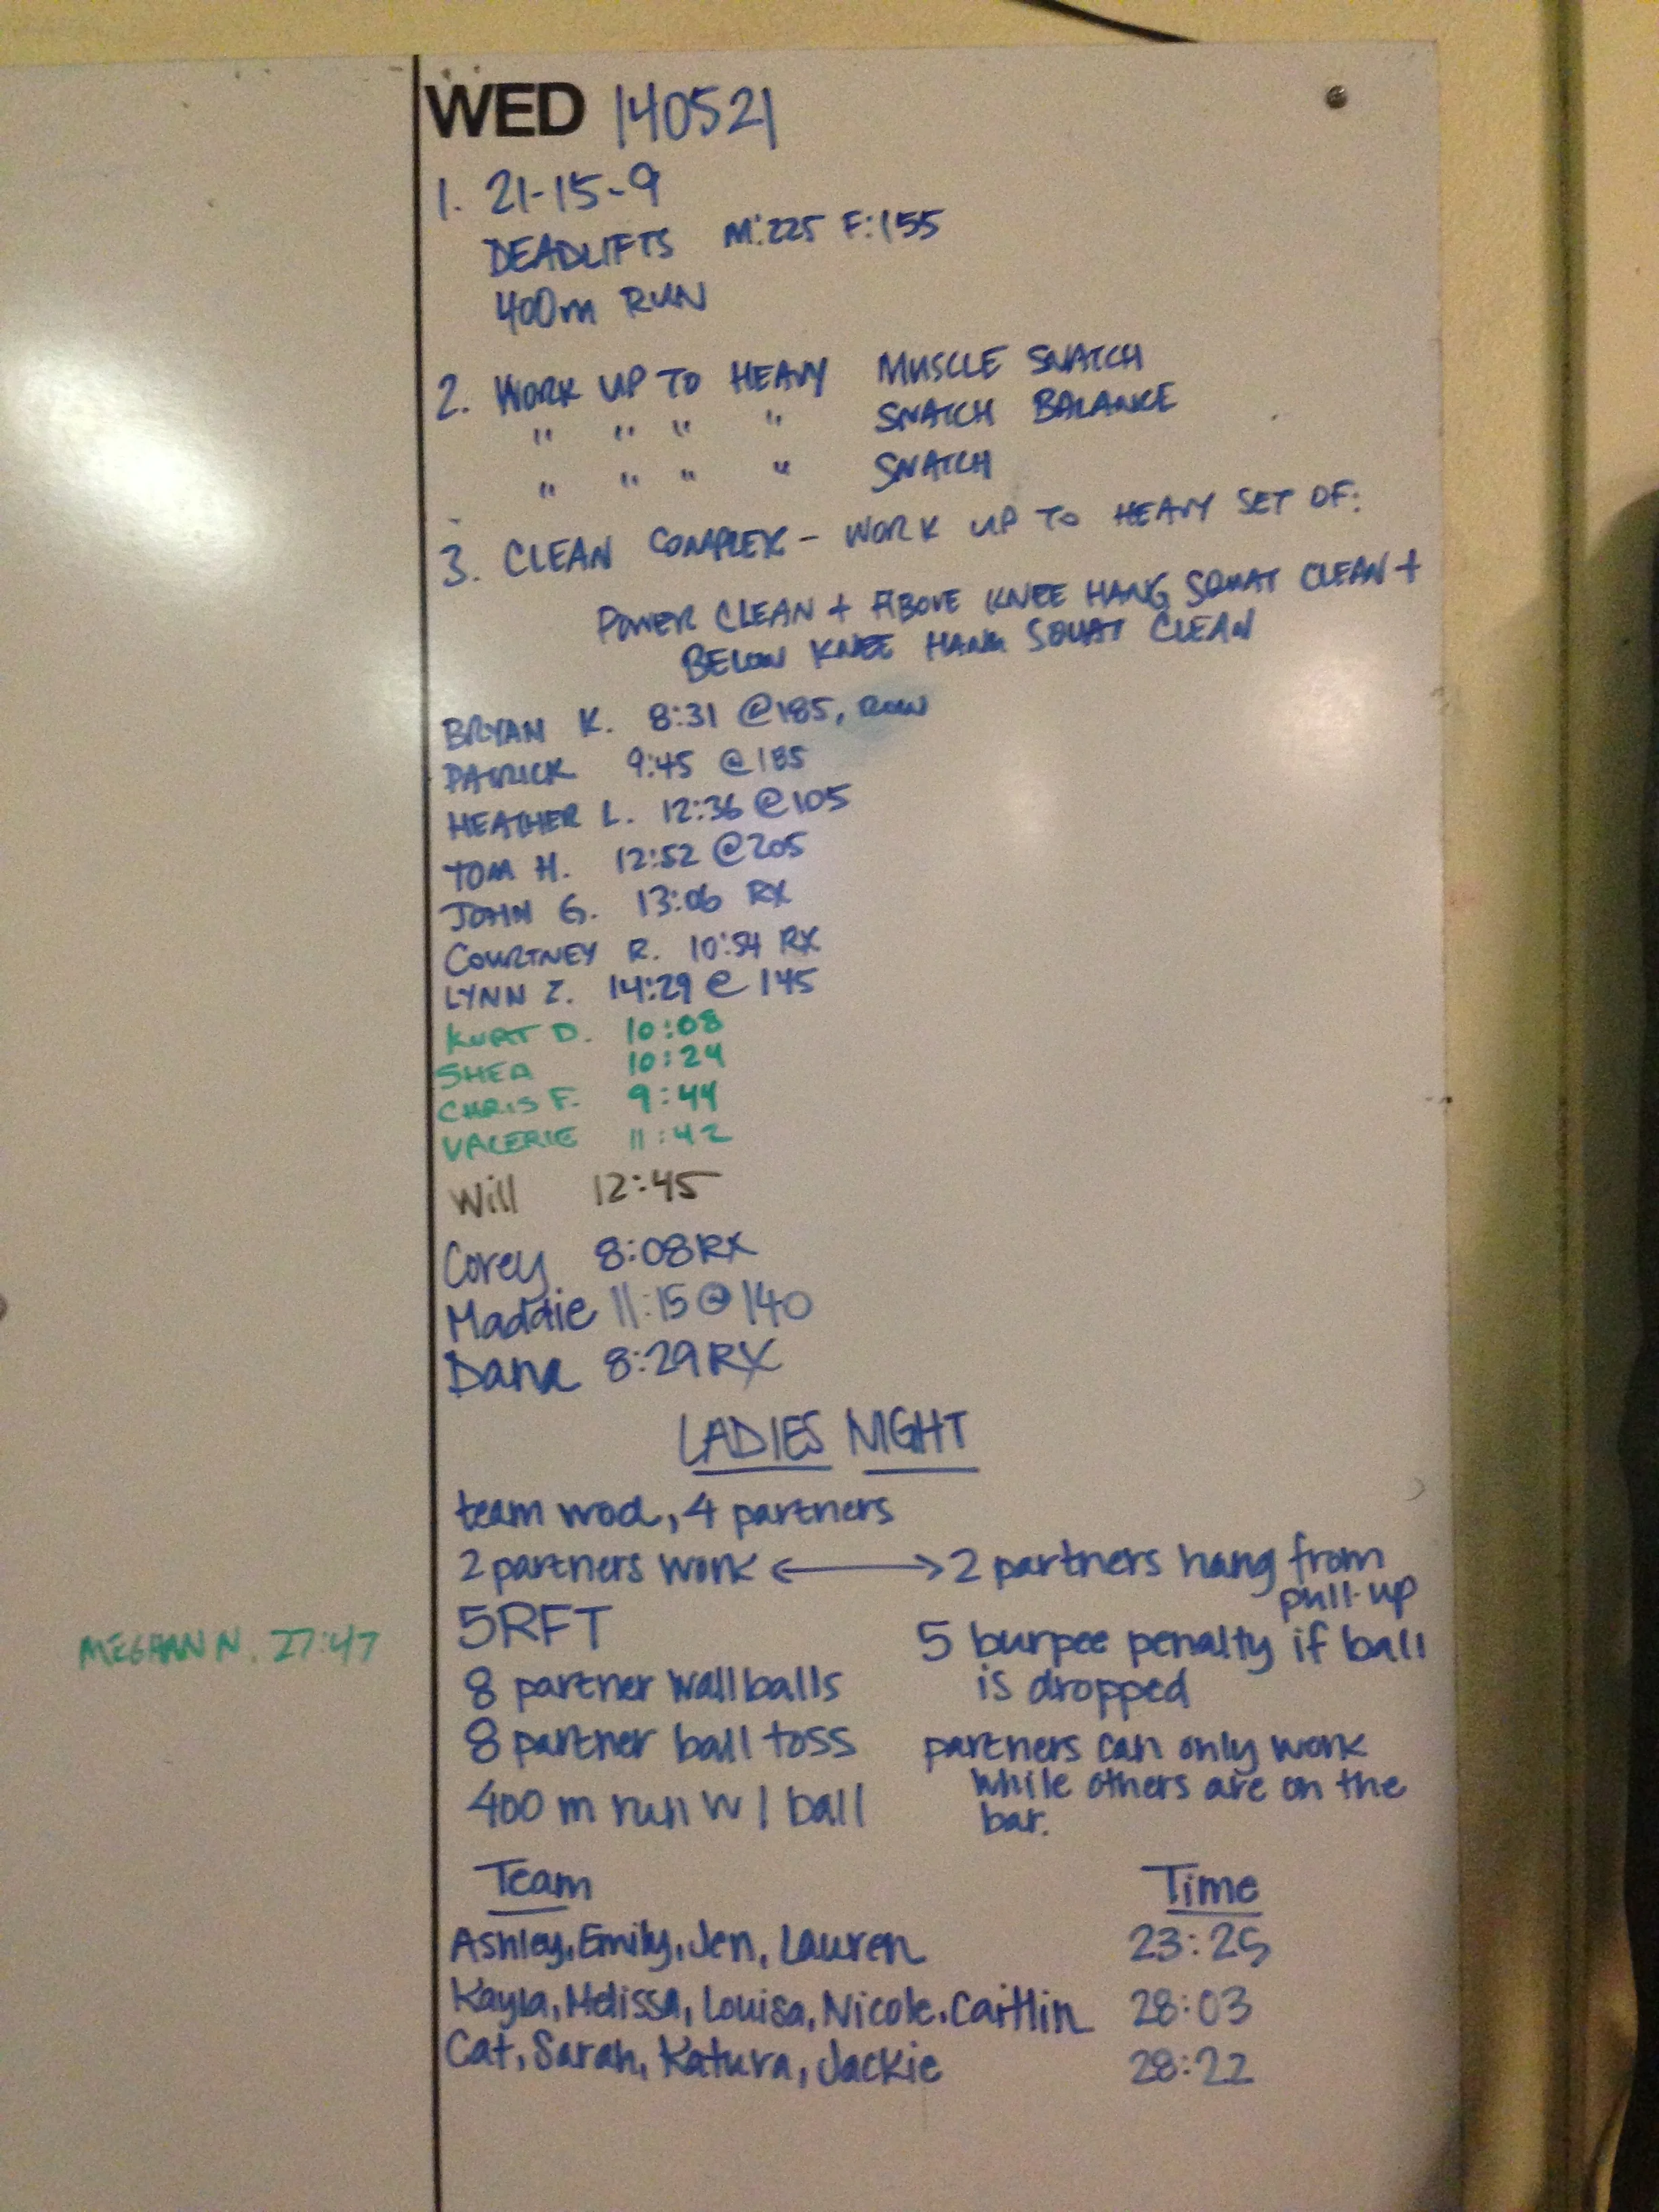 WED 140521
1. 21-15-9
DEADLIFTS M:225 F:155
400m RUN
2. WORK UP TO HEAVY MUSCLE SNATCH
" " " " SNATCH BALANCE
" " " " SNATCH
3. CLEAN COMPLEX - WORK UP TO HEAVY SET OF:
POWER CLEAN + ABOVE KNEE HANG SQUAT CLEAN +
BELOW KNEE HANG SQUAT CLEAN
BRYAN K. 8:31 @185, ROW
PATRICK 9:45 @185
HEATHER L. 12:36 @105
TOM H. 12:52 @205
JOHN G. 13:06 RX
COURTNEY R. 10:54 RX
LYNN Z. 14:29 @ 145
KURT D. 10:08
SHEA 10:24
CHRIS F. 9:44
VALERIE 11:42
Will 12:45
Corey 8:08 RX
Maddie 11:15 @ 140
Dana 8:29 RX
LADIES NIGHT
team wod, 4 partners
2 partners work <-> 2 partners hang from
pull-up
5RFT
8 partner wallballs
8 partner ball toss
400 m run w/ ball
5 burpee penalty if ball
is dropped
partners can only work
while others are on the
bar.
MEGHAN N. 27:47
Team Time
Ashley, Emily, Jen, Lauren 23:25
Kayla, Melissa, Louisa, Nicole, Caitlin 28:03
Cat, Sarah, Katura, Jackie 28:22